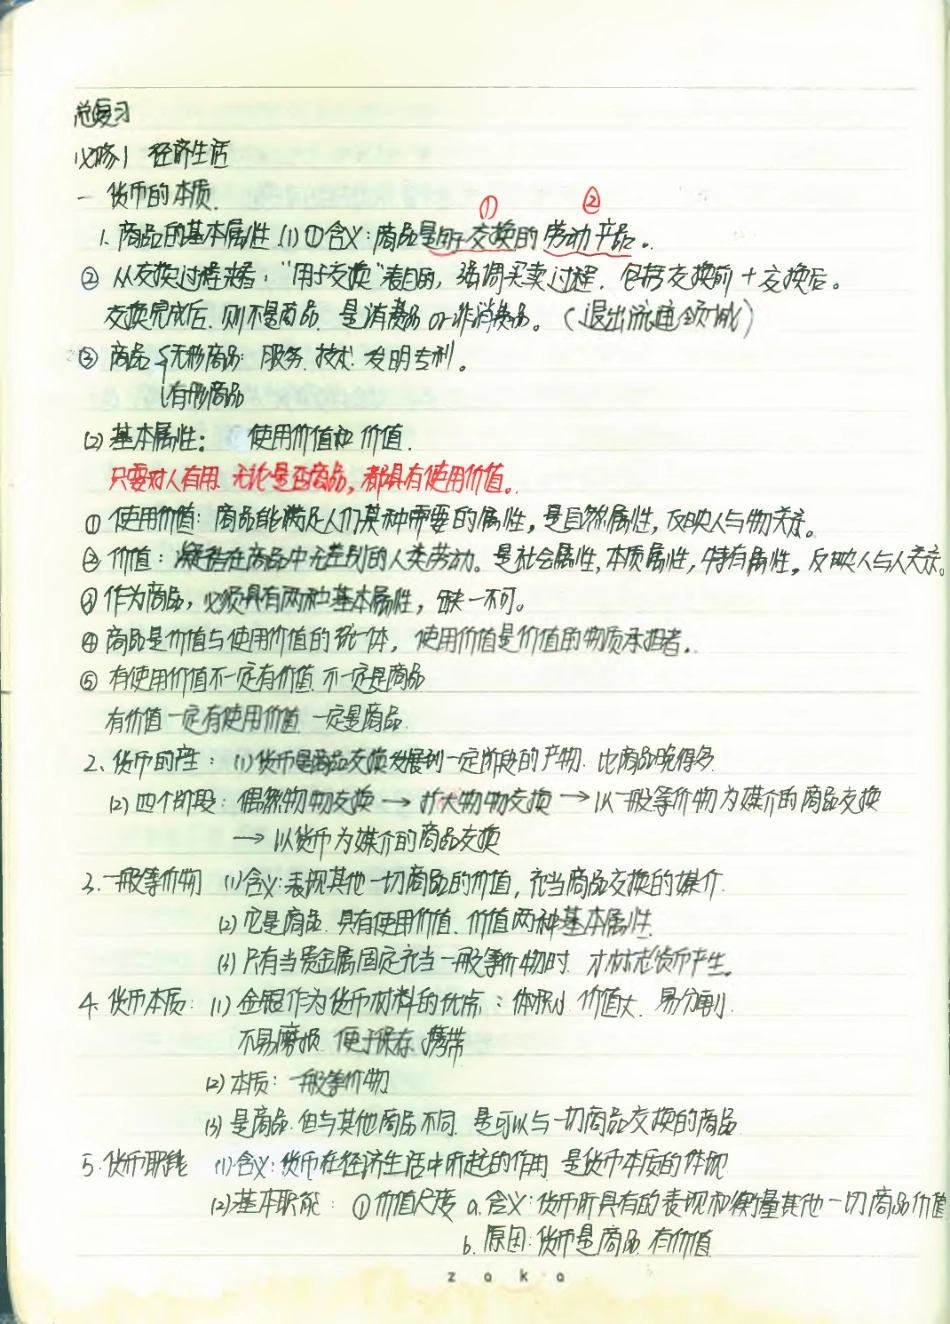 总复习
必修1 经济生活
一 货币的本质.
① ②
1. 商品的基本属性 (1) ①含义:商品是用于交换的劳动产品。
② 从交换过程来看:“用于交换”表目的, 强调买卖过程. 包括交换前+交换后。
交换完成后. 则不是商品. 是消费品 or 非消费品。(退出流通领域)
③ 商品 { 无形商品: 服务. 技术. 发明专利。
有形商品
(2) 基本属性: 使用价值和价值.
只要对人有用. 无论是否商品, 都具有使用价值。
① 使用价值: 商品能满足人们某种需要的属性, 是自然属性, 反映人与物关系。
② 价值: 凝结在商品中无差别的人类劳动。是社会属性, 本质属性, 特有属性。反映人与人关系。
③ 作为商品, 必须具有两种基本属性, 缺一不可。
④ 商品是价值与使用价值的统一体, 使用价值是价值的物质承担者。
⑤ 有使用价值不一定有价值. 不一定是商品
有价值一定有使用价值 一定是商品.
2、货币的产生: (1) 货币是商品交换发展到一定阶段的产物. 比商品晚得多.
(2) 四个阶段: 偶然物物交换 → 扩大物物交换 → 以一般等价物为媒介的商品交换
→ 以货币为媒介的商品交换
3. 一般等价物 (1)含义:表现其他一切商品的价值, 充当商品交换的媒介.
(2) 它是商品. 具有使用价值. 价值两种基本属性.
(3) 只有当贵金属固定充当一般等价物时. 才标志货币产生。
4. 货币本质: (1) 金银作为货币材料的优点: 体积小. 价值大. 易分割.
不易磨损. 便于保存. 携带
(2) 本质: 一般等价物
(3) 是商品. 但与其他商品不同. 是可以与一切商品交换的商品
5. 货币职能 (1)含义:货币在经济生活中所起的作用. 是货币本质的体现
(2)基本职能: ①价值尺度 a. 含义:货币所具有的表现和衡量其他一切商品价值
b. 原因:货币是商品. 有价值
zaka